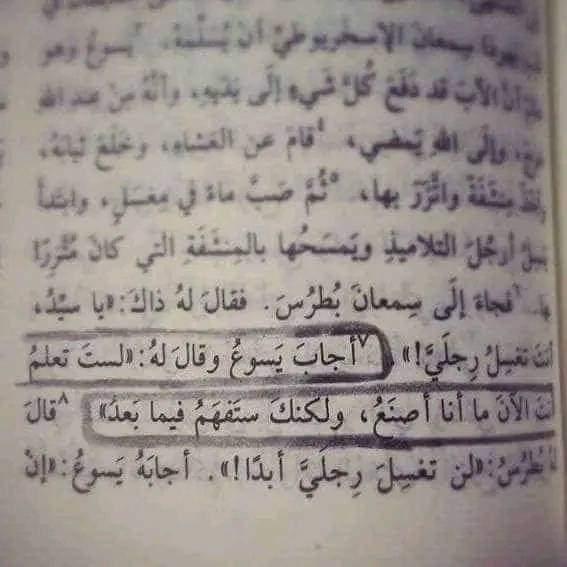 يهوذا سمعان الإسخريوطي أن يسلمه، ³يسوع وهو
أن الآب قد دفع كل شيء إلى يديه، وأنه من عند الله
خرج، وإلى الله يمضي، ⁴قام عن العشاء، وخلع ثيابه،
وأخذ منشفة واتزر بها، ⁵ثم صب ماء في مغسل، وابتدأ
يغسل أرجل التلاميذ ويمسحها بالمنشفة التي كان متزرا
بها. ⁶فجاء إلى سمعان بطرس. فقال له ذاك: «يا سيد،
أنت تغسل رجلي!» ⁷أجاب يسوع وقال له: «لست تعلم
أنت الآن ما أنا أصنع، ولكنك ستفهم فيما بعد» ⁸قال
له بطرس: «لن تغسل رجلي أبدا!». أجابه يسوع: «إن